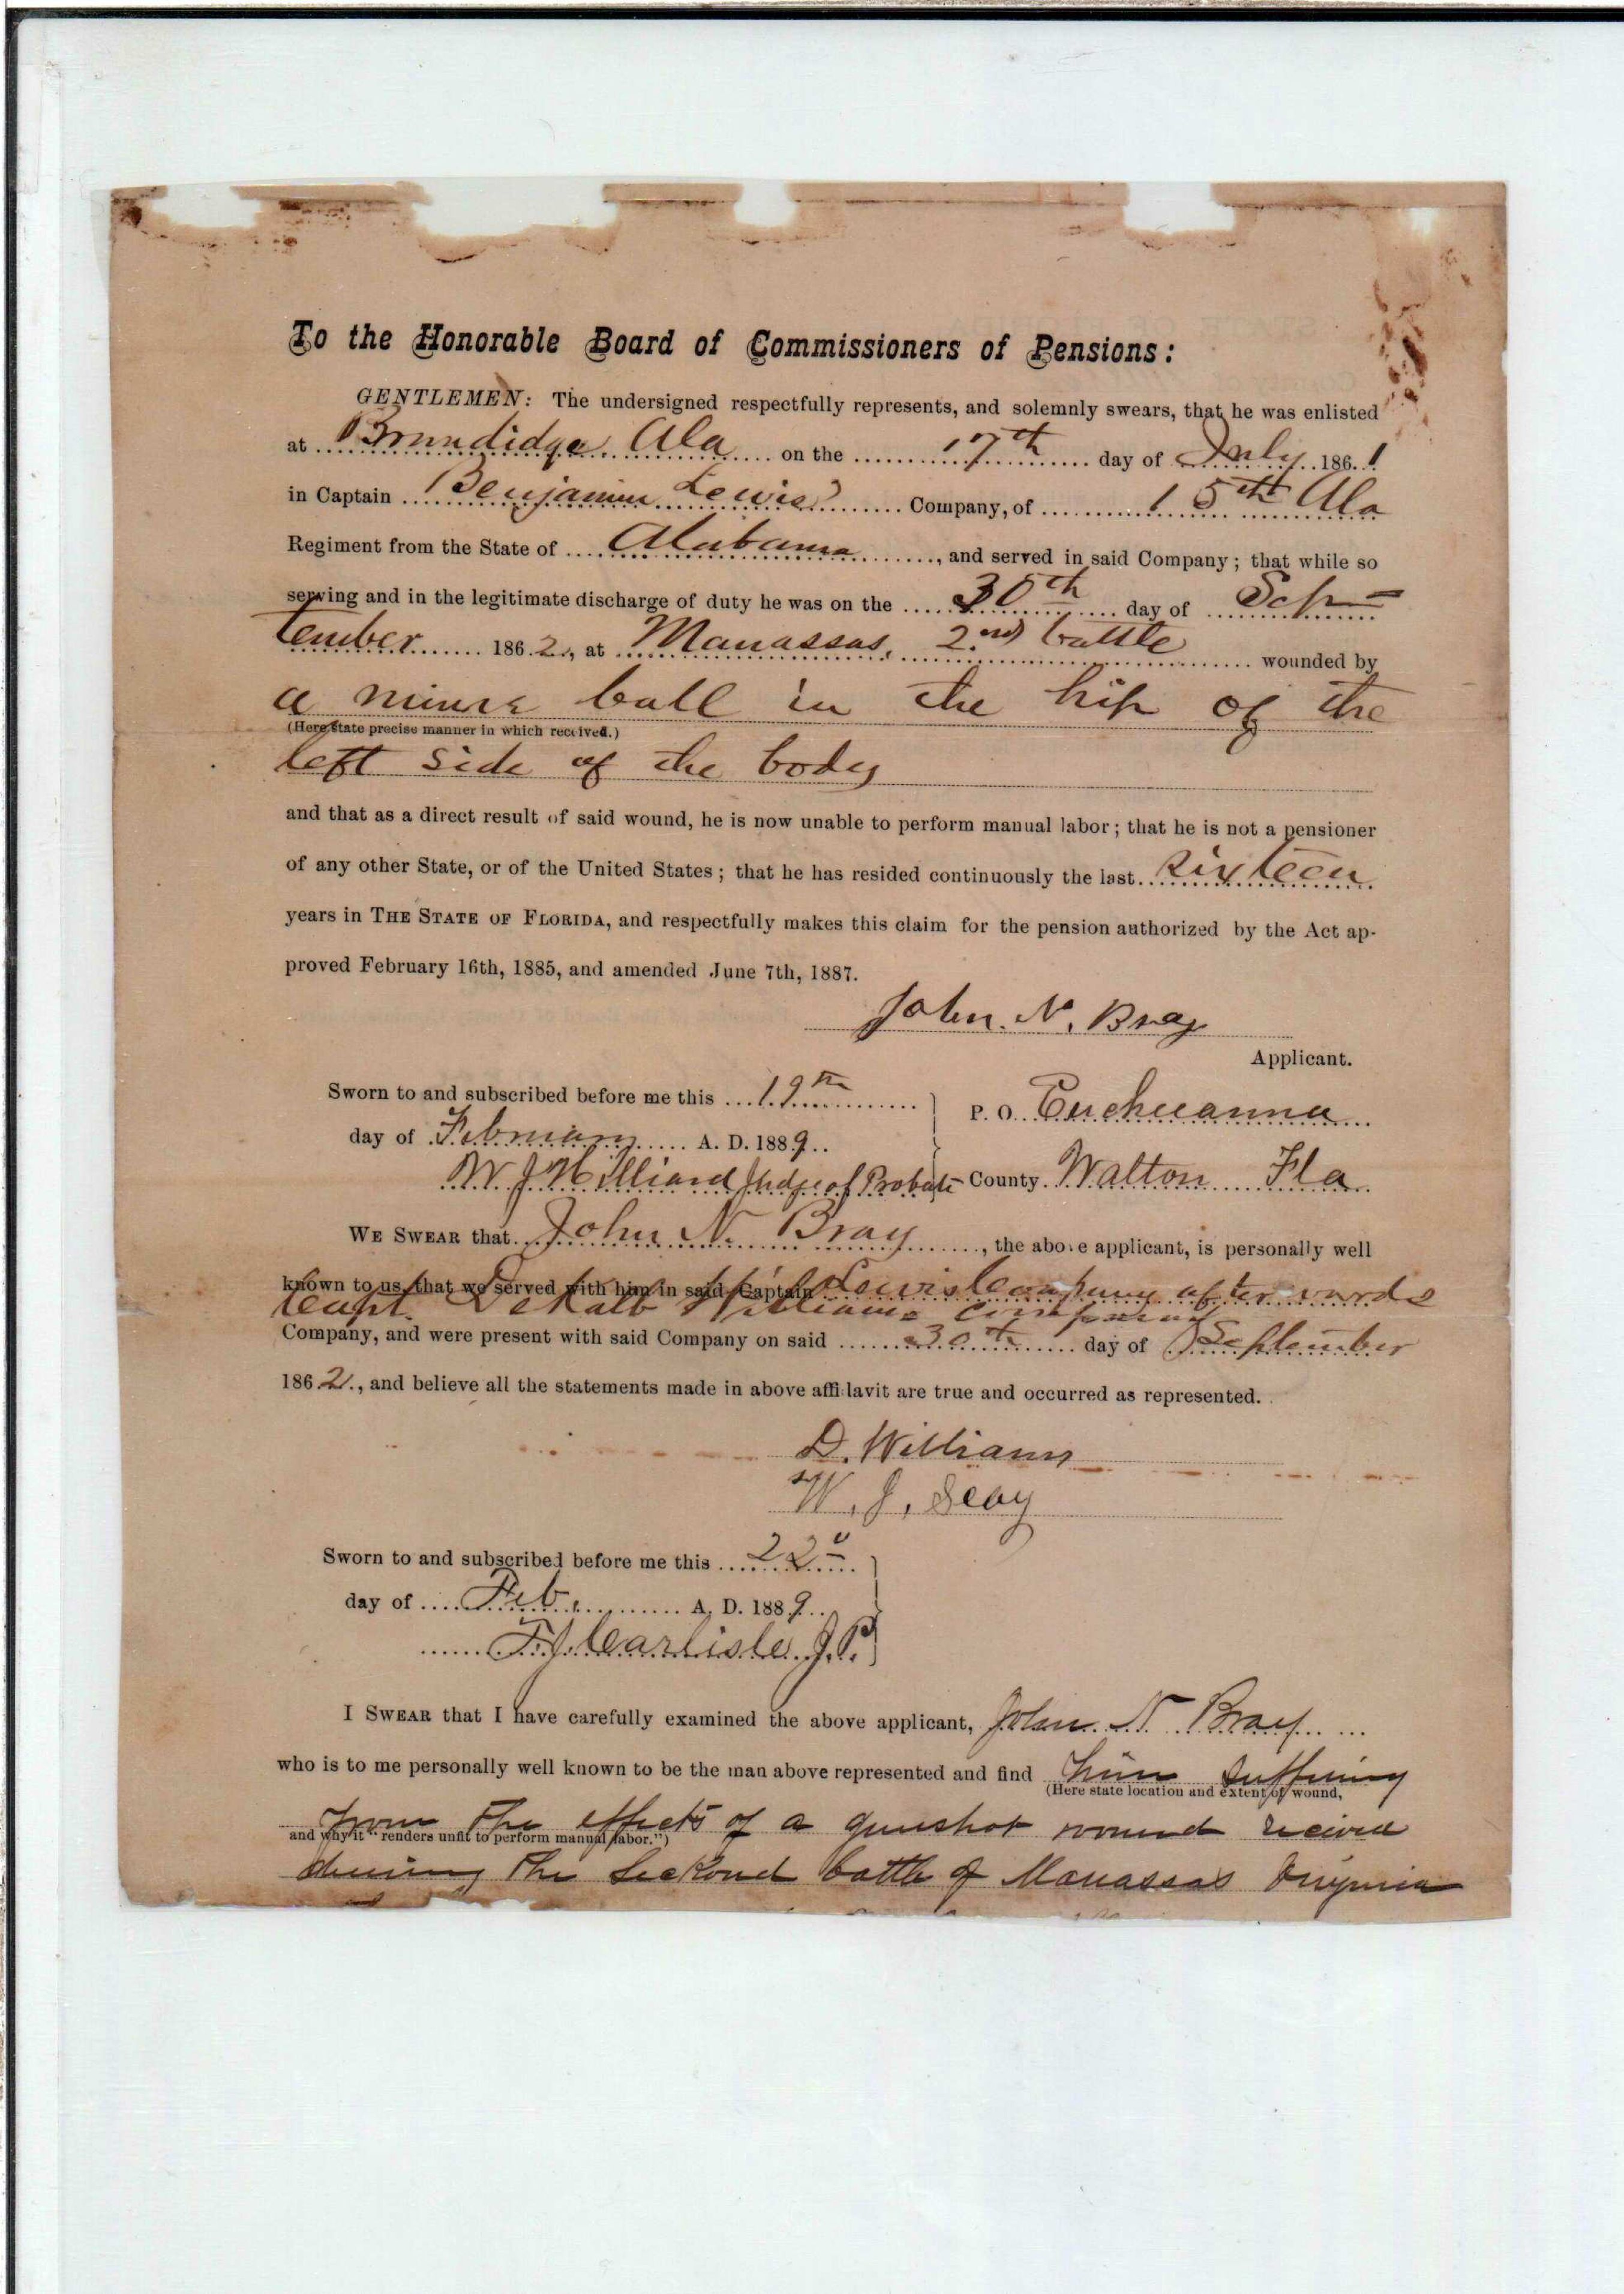 To the Honorable Board of Commissioners of Pensions:
GENTLEMEN: The undersigned respectfully represents, and solemnly swears, that he was enlisted
at Brundidge, Ala on the 17th day of July 1861
in Captain Benjamin Lewis Company, of 15th Ala
Regiment from the State of Alabama, and served in said Company; that while so
serving and in the legitimate discharge of duty he was on the 30th day of Sep-
tember 1862, at Manassas, 2nd battle wounded by
a minnie ball in the hip of the
(Here state precise manner in which received.)
left side of the body
and that as a direct result of said wound, he is now unable to perform manual labor; that he is not a pensioner
of any other State, or of the United States; that he has resided continuously the last Sixteen
years in THE STATE OF FLORIDA, and respectfully makes this claim for the pension authorized by the Act ap-
proved February 16th, 1885, and amended June 7th, 1887.
John. N. Bray
Applicant.
Sworn to and subscribed before me this 19th
day of February A. D. 1889
W J Hilliard Judge of Probate
P. O. Eucheeanna
County Walton Fla
WE SWEAR that John N. Bray, the above applicant, is personally well
known to us, that we served with him in said Captain Lewis Company afterwards
Capt. DeKalb Williams Company
Company, and were present with said Company on said 30th day of September
1862, and believe all the statements made in above affidavit are true and occurred as represented.
D. Williams
W. J. Seay
Sworn to and subscribed before me this 22d
day of Feb. A. D. 1889
F. J. Carlisle J. P.
I SWEAR that I have carefully examined the above applicant, John N Bray
who is to me personally well known to be the man above represented and find him suffering
(Here state location and extent of wound,
from the effects of a gunshot wound received
and why it "renders unfit to perform manual labor.")
during the Seckond battle of Manassas Virginia